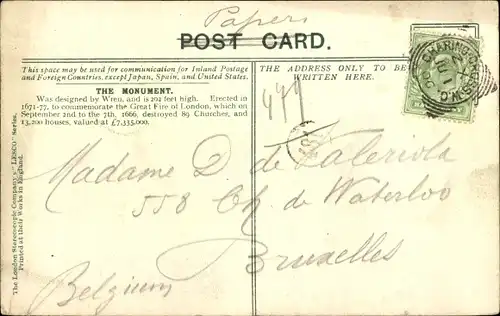 Papers
POST CARD.
This space may be used for communication for Inland Postage
and Foreign Countries, except Japan, Spain, and United States.
THE ADDRESS ONLY TO BE
WRITTEN HERE.
THE MONUMENT.
Was designed by Wren, and is 202 feet high. Erected in
1671-77, to commemorate the Great Fire of London, which on
September 2nd to the 7th, 1666, destroyed 89 Churches, and
13,200 houses, valued at £7,335,000.
CHARING CROSS
Madame D de Valeriola
558 Ch de Waterloo
Bruxelles
Belgium
The London Stereoscopic Company's "LESCO" Series.
Printed at their Works in England.